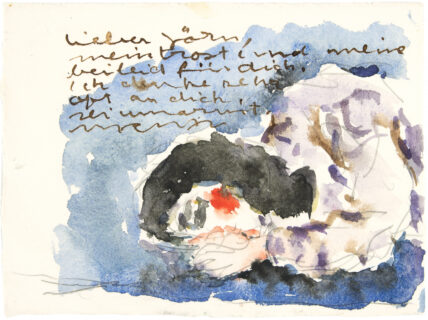 lieber Jörn,
mein trost und meine
beileid für dich.
ich denke sehr
oft an dich,
sei umarmt